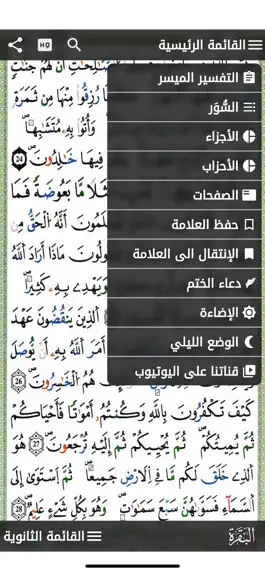 القائمة الرئيسية
HQ
التفسير الميسر
السُّوَر
الأجزاء
الأحزاب
الصفحات
حفظ العلامة
الإنتقال الى العلامة
دعاء الختم
الإضاءة
الوضع الليلي
قناتنا على اليوتيوب
رُزِقُواْ مِنْهَا مِن ثَمَرَةٖ
وَأُتُواْ بِهِۦ مُتَشَٰبِهاٗ
فِيهَا خَٰلِدُونَۖ 24
مَثَلاٗ مَّا بَعُوضَةٗ فَمَا
أَنَّهُ اُ۬لْحَقُّ مِن
مَاذَا أَرَادَ اَ۬للَّهُ
وَيَهْدِے بِهِۦ كَثِيراٗۖ
اَ۬لذِينَ يَنقُضُونَ عَهْدَ
أَمَرَ اَ۬للَّهُ بِهِۦٓ أَنْ يُّوصَلَ
هُمُ اُ۬لْخَٰسِرُونَۖ 26
كَيْفَ تَكْفُرُونَ بِاللَّهِ وَكُنتُمُۥٓ أَمْوَٰتاٗ فَأَحْيَٰكُمْ
ثُمَّ يُمِيتُكُمْ ثُمَّ يُحْيِيكُمْ ثُمَّ إِلَيْهِ تُرْجَعُونَۖ 27 هُوَ
اَ۬لذِے خَلَقَ لَكُم مَّا فِے اِ۬لَارْضِ جَمِيعاٗ ثُمَّ اَ۪سْتَو۪ىٰٓ إِلَى
اَ۬لسَّمَآءِ فَسَوّ۪ىٰهُنَّ سَبْعَ سَمَٰوَٰتٖۖ وَهُوَ بِكُلِّ شَےْءٍ عَلِيمٞۖ 28
القائمة الثانوية
البَقَرَة